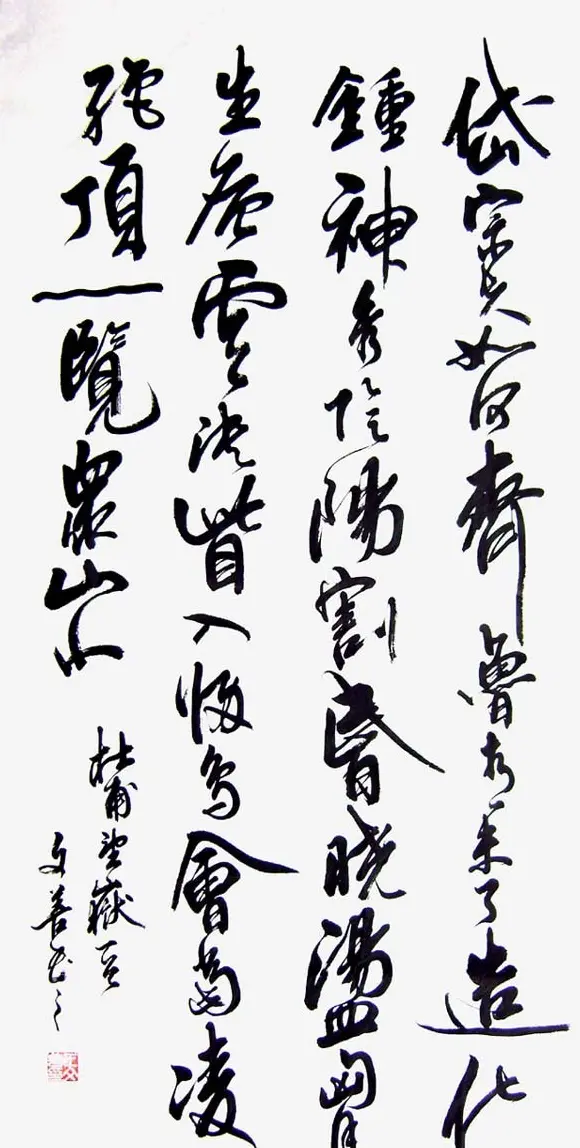 岱宗夫如何齊魯青未了造化
鍾神秀陰陽割昬曉盪胷
生層雲決眥入歸鳥會當凌
絕頂一覽衆山小
杜甫望嶽
文善书之